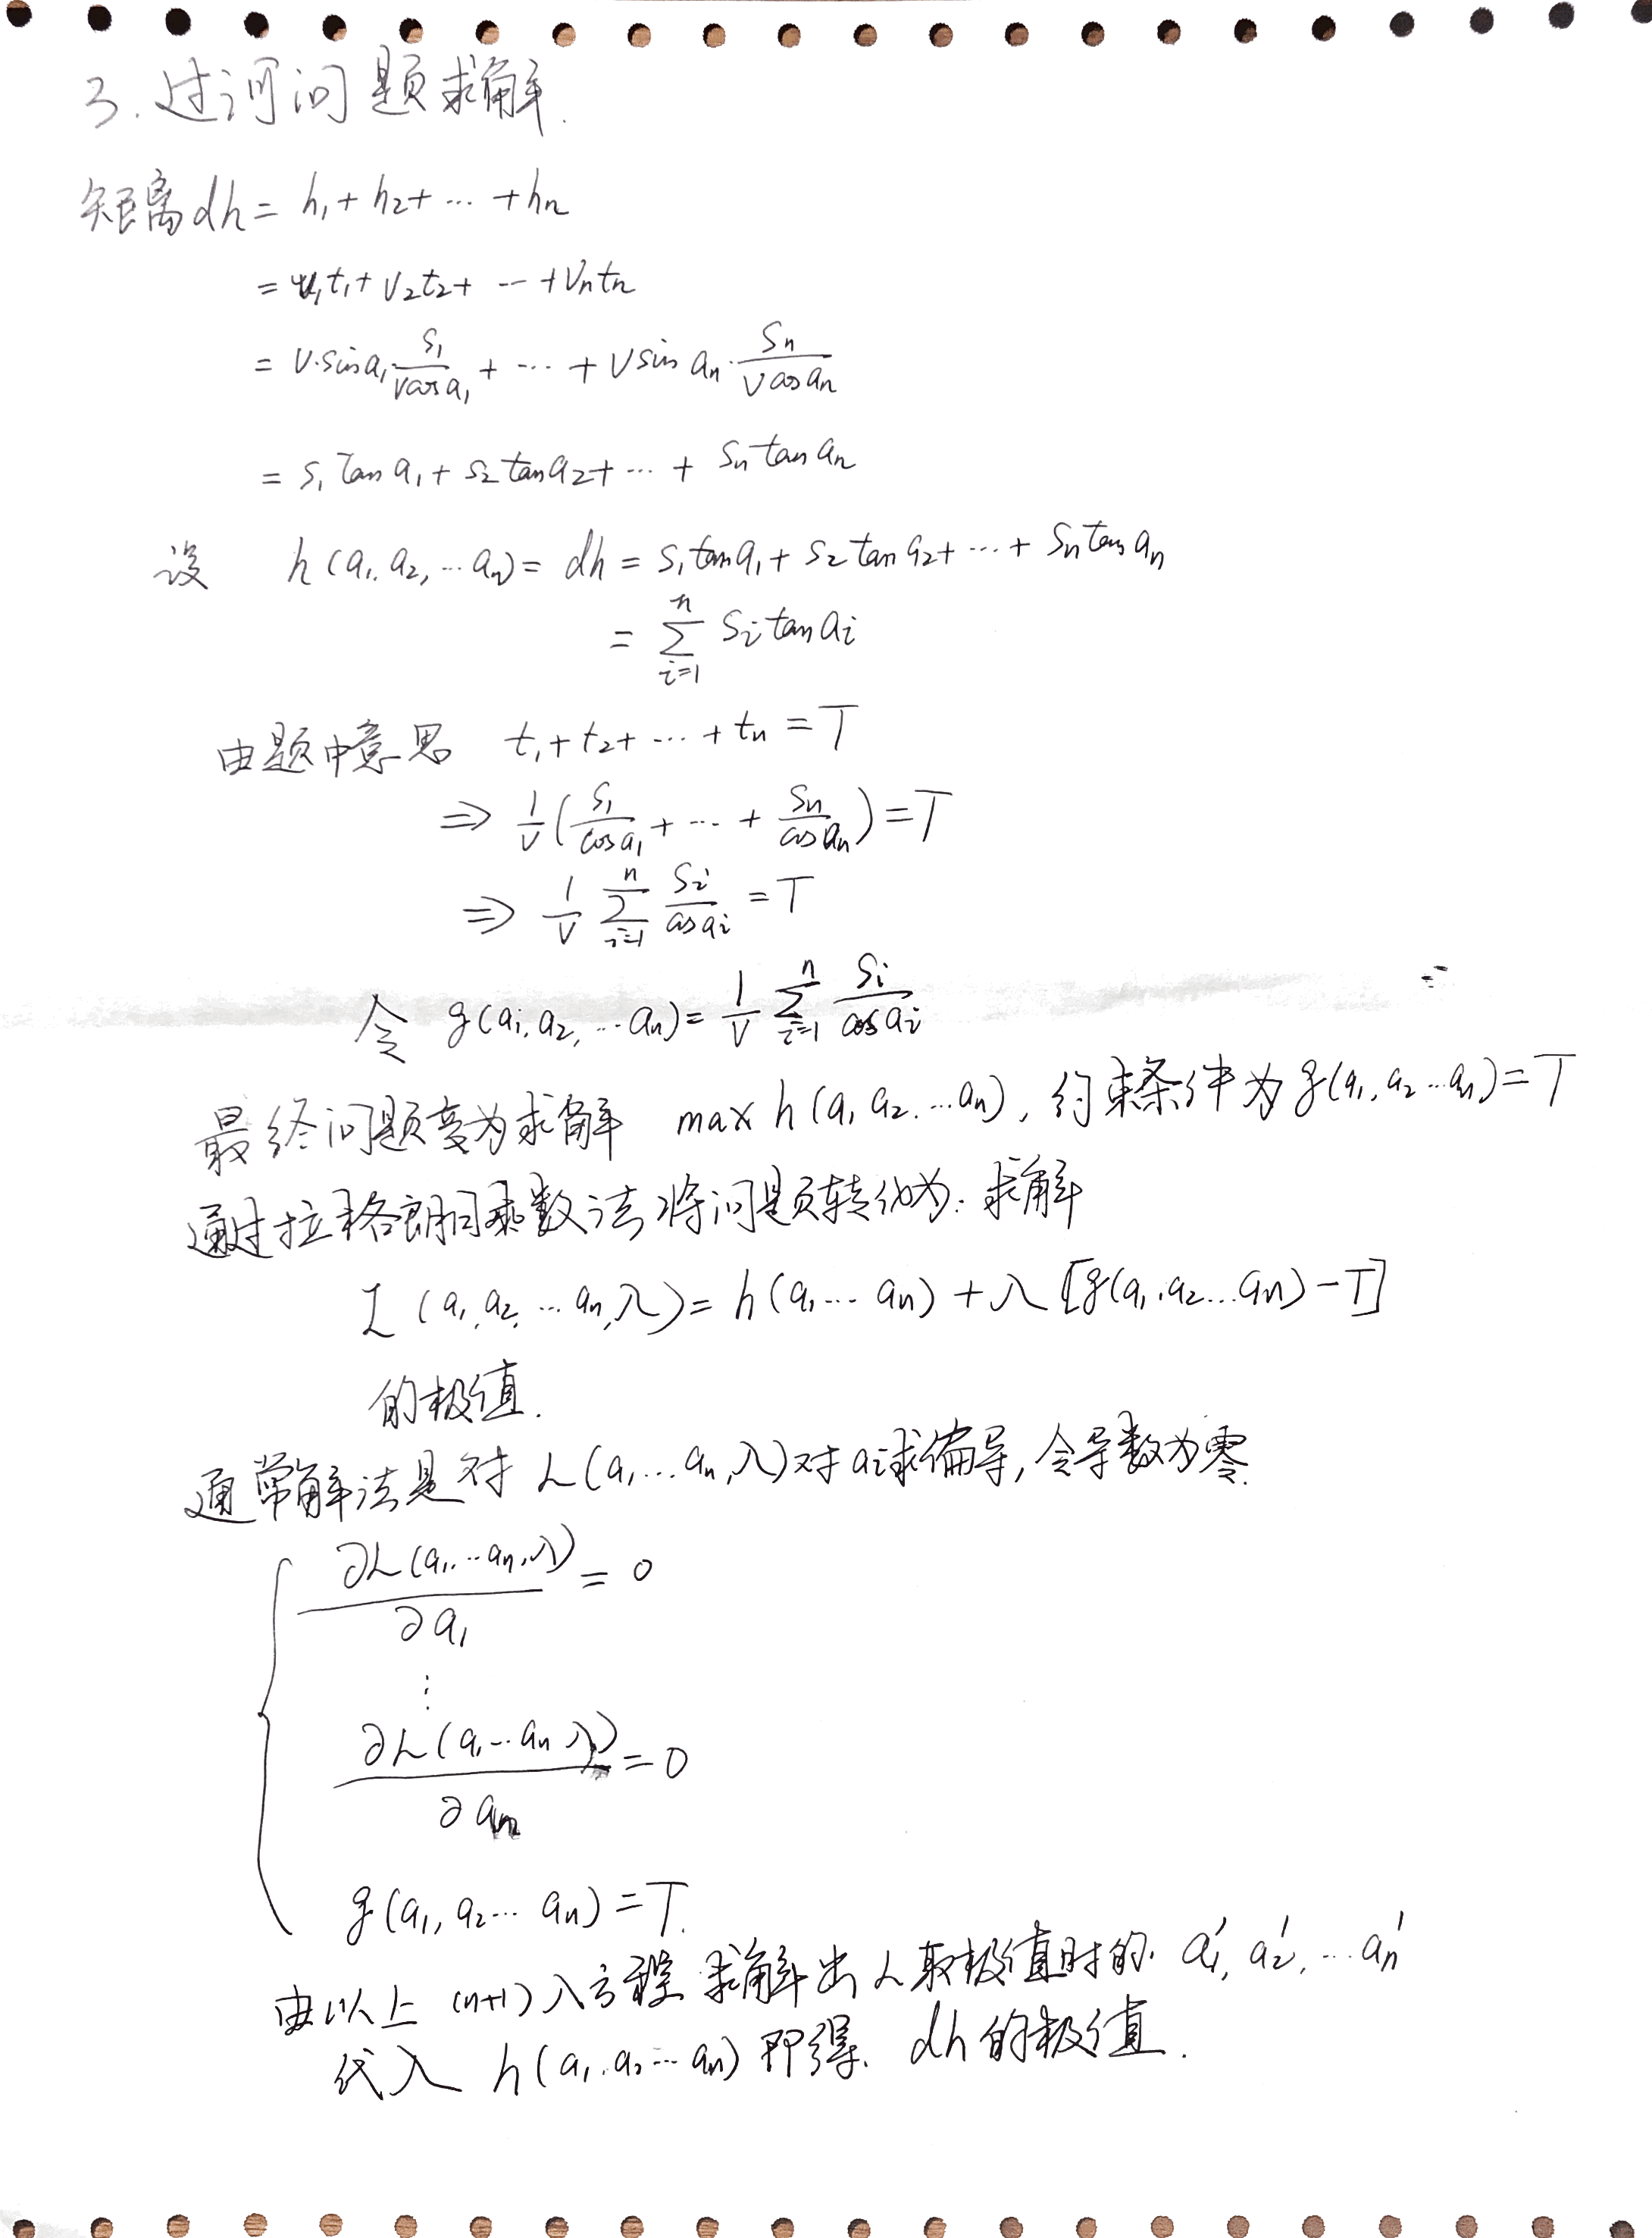 3. 过河问题求解.
距离dh = h₁ + h₂ + ... + hₙ
= v₁t₁ + v₂t₂ + ... + vₙtₙ
= v·sina₁ · s₁/(vcosa₁) + ... + vsin aₙ · sₙ/(vcosaₙ)
= s₁ tan a₁ + s₂ tan a₂ + ... + sₙ tan aₙ
设 h(a₁, a₂, ... aₙ) = dh = s₁tan a₁ + s₂ tan a₂ + ... + sₙ tan aₙ
= ∑ᵢ₌₁ⁿ sᵢ tan aᵢ
由题中意思 t₁ + t₂ + ... + tₙ = T
⇒ 1/v (s₁/cosa₁ + ... + sₙ/cosaₙ) = T
⇒ 1/v ∑ᵢ₌₁ⁿ sᵢ/cosaᵢ = T
令 g(a₁, a₂, ... aₙ) = 1/v ∑ᵢ₌₁ⁿ sᵢ/cosaᵢ
最终问题变为求解 max h(a₁ a₂. ... aₙ), 约束条件为 g(a₁, a₂ ... aₙ) = T
通过拉格朗日乘数法将问题转化为: 求解
L (a₁, a₂, ... aₙ, λ) = h(a₁ ... aₙ) + λ [g(a₁, a₂ ... aₙ) - T]
的极值.
通常解法是对 L(a₁, ... aₙ, λ)对 aᵢ求偏导, 令导数为零.
∂L(a₁, ... aₙ, λ)/∂a₁ = 0
⋮
∂L(a₁ ... aₙ λ)/∂aₙ = 0
g(a₁, a₂ ... aₙ) = T.
由以上 (n+1) 个方程 求解出 L取极值时的 a₁', a₂', ... aₙ'
代入 h(a₁, a₂ ... aₙ) 即得. dh的极值.